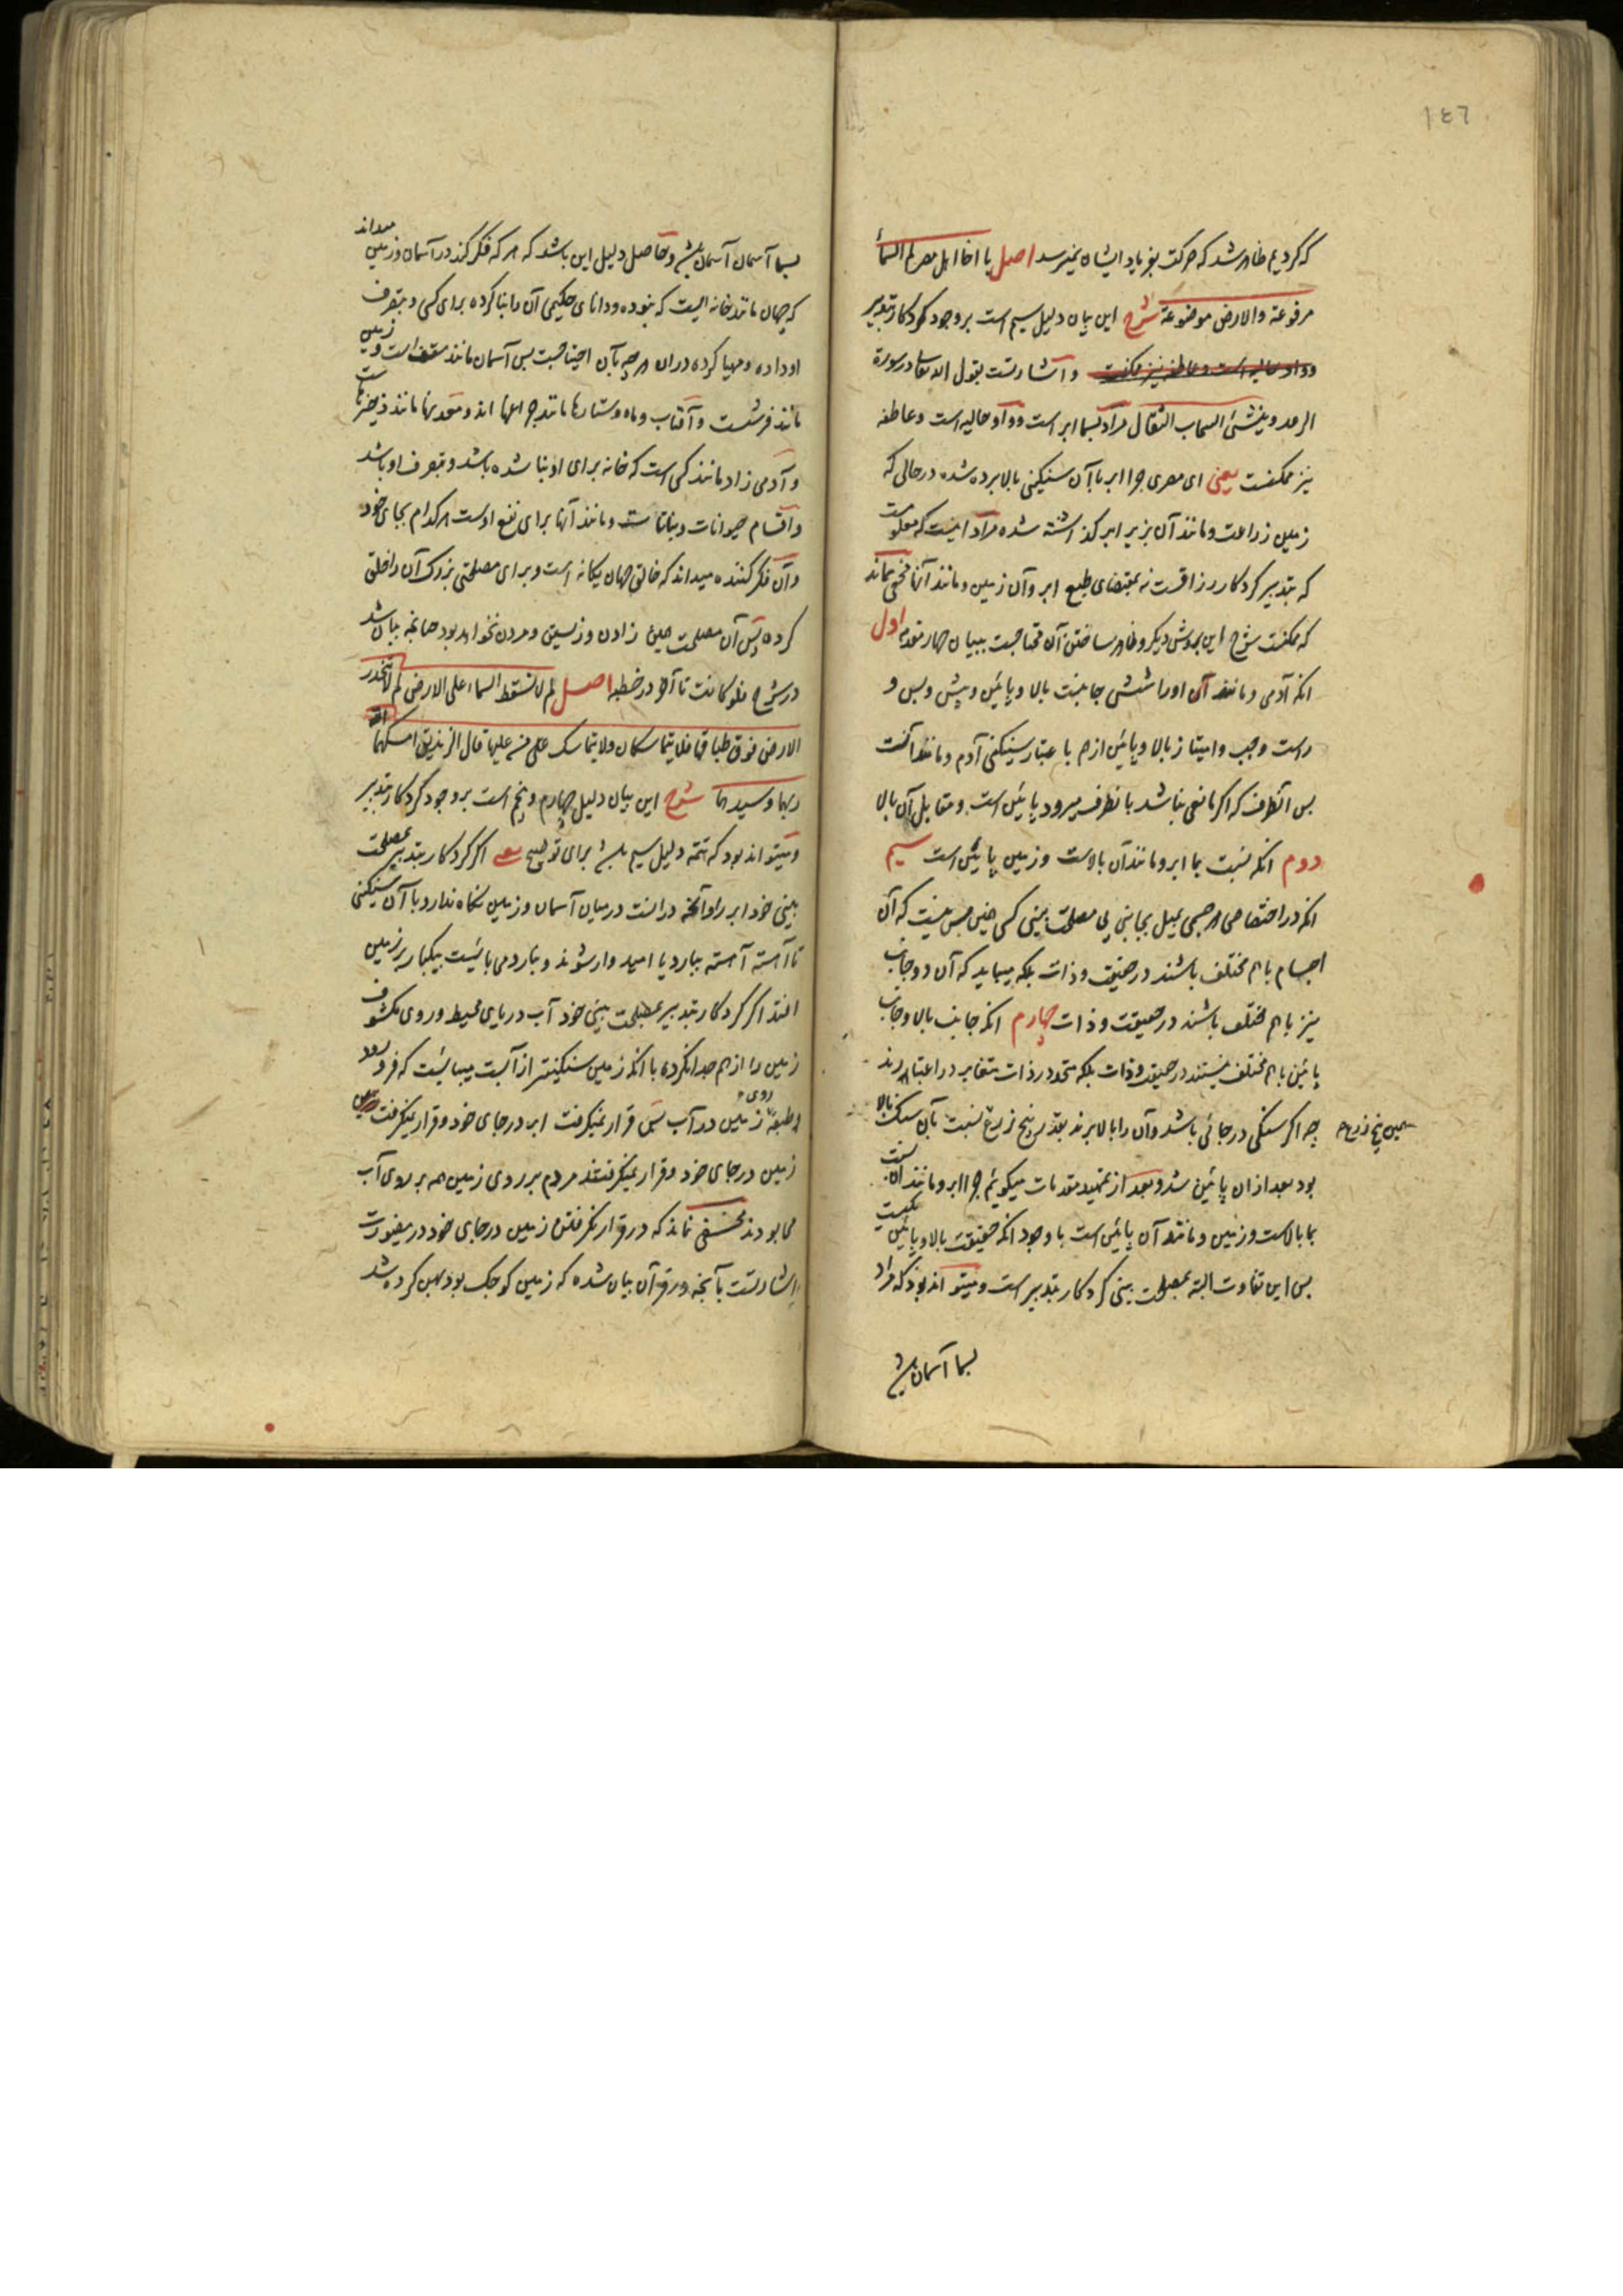 ١٤٦
که کردیم ظاهر شد که حرکت بفریاد ایشان نمیرسد اصل یا اخا اهل مصر لم السماء
مرفوعة والارض موضوعة شرح این بیان دلیل سیم است بر وجود کردکار بتدبیر
وواو حالیه است و عاطفه نیز ممکنست و اشارتست بقول الله تعالی در سورة
الرعد وینشئ السحاب الثقال مراد بسما ابر است و واو حالیه است و عاطفه
نیز ممکنست یعنی ای مصری چرا ابر با آن سنکینی بالا برده شده در حالی که
زمین زراعت و مانند آن بزیر ابر کذاشته شده مراد اینست که معلومست
که بتدبیر کردکار رزاقست نه بمقتضای طبع ابر و آن زمین و مانند آنها مخفی نماند
که ممکنست شرح این بروش دیکر و ظاهر ساختن آن محتاجست ببیان چهار مقدمه اول
انکه آدمی و مانند آن اورا شش جانبست بالا و پائین و پیش و پس و
راست و چپ و امتیاز بالا و پائین از هم باعتبار سنکینی آدم و مانند آنست
پس انطرف که اکر مانعی نباشد بانطرف میرود پائین است و مقابل آن بالا
دوم انکه نسبت بما ابر و مانند آن بالاست و زمین پائین است سیم
انکه در اختصاص هر جسمی بمیل بجانبی بی مصلحت بینی کسی همین بس نیست که آن
اجسام با هم مختلف باشند در حقیقت و ذات بلکه میباید که آن دو جانب
نیز با هم مختلف باشند در حقیقت و ذات چهارم انکه جانب بالا و جانب
پائین با هم مختلف نیستند در حقیقت و ذات بلکه متحد در ذات متغایر در اعتبارند
چه اکر سنکی در جائی باشد و آن را بالا برند بقدر پنج ذرع نسبت بآن سنک بالا
همین پنج ذرع
بود بعد ازان پائین شد و بعد از تمهید مقدمات میکوئیم چرا ابر و مانند آن نسبت
بما بالاست و زمین و مانند آن پائین است با وجود انکه حقیقت بالا و پائین یکیست
پس این تفاوت البته بمصلحت بینی کردکار بتدبیر است و میتواند بود که مراد
بسما آسمان باشد
بسما آسمان آسمان باشد و حاصل دلیل این باشد که هر که فکر کند در آسمان و زمین میداند
که جهان مانند خانه ایست که نبوده و دانای حکیمی آن را بنا کرده برای کسی و بتصرف
او داده و مهیا کرده دران هر چه بآن احتیاجست پس آسمان مانند سقف است و زمین
مانند فرشست و آفتاب و ماه و ستارها مانند چراغها اند و معدنها مانند ذخیرهاست
و آدمی زاد مانند کسی است که خانه برای او بنا شده باشد و بتصرف او باشد
و اقسام حیوانات و نباتات و مانند آنها برای نفع اوست هر کدام بجای خود
و آن فکر کننده میداند که خالق جهان یکانه است و برای مصلحتی بزرک آن را خلق
کرده پس آن مصلحت همین زادن و زیستن و مردن نخواهد بود چنانچه بیان شد
در شرح فلو کانت تا آخر در خطبه اصل لم لا تسقط السماء علی الارض لم لا تنحدر
الارض فوق طباقها فلا یتماسکان ولا یتماسک من علیها قال الزندیق امسکهما الله
ربهما وسیدهما شرح این بیان دلیل چهارم و پنجم است بر وجود کردکار بتدبیر
و میتواند بود که تتمه دلیل سیم باشد برای توضیح یعنی اکر کردکار بتدبیر بمصلحت
بینی خود ابر را وانخه در میان آسمان و زمین نکاه ندارد با آن سنکینی
تا آهسته آهسته ببارد یا امیدوار شوند و نبارد می بایست بیکبار بر زمین
افتد اکر کردکار بتدبیر بمصلحت بینی خود آب دریای محیط و روی مکشوف
زمین را از هم جدا نکرده با انکه زمین سنکینتر از آبست میبایست که فرو رود
طبقه روی زمین در آب پس قرار نمیکرفت ابر در جای خود و قرار نمیکرفت
زمین در جای خود و قرار نمیکرفتند مردم بر روی زمین همه بر روی آب
می بودند مخفی نماند که در قرار نکرفتن زمین در جای خود درینصورت
اشارتست بآنچه در قرآن بیان شده که زمین کوچک بود پهن کرده شد